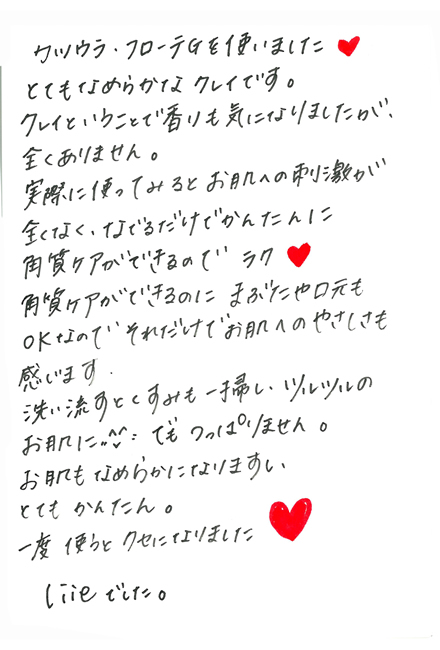 カツウラ・フローテGを使いました
とてもなめらかな クレイです。
クレイということで香りも気になりましたが、
全くありません。
実際に使ってみるとお肌への刺激が
全くなく、なでるだけでかんたんに
角質ケアができるので ラク
角質ケアができるのに まぶたや口元も
OKなので それだけでお肌へのやさしさも
感じます.
洗い流すとくすみも一掃し、ツルツルの
お肌に でも つっぱりません。
お肌もなめらかになりますし、
とても かんたん。
一度 使うと クセになりました
liieでした。